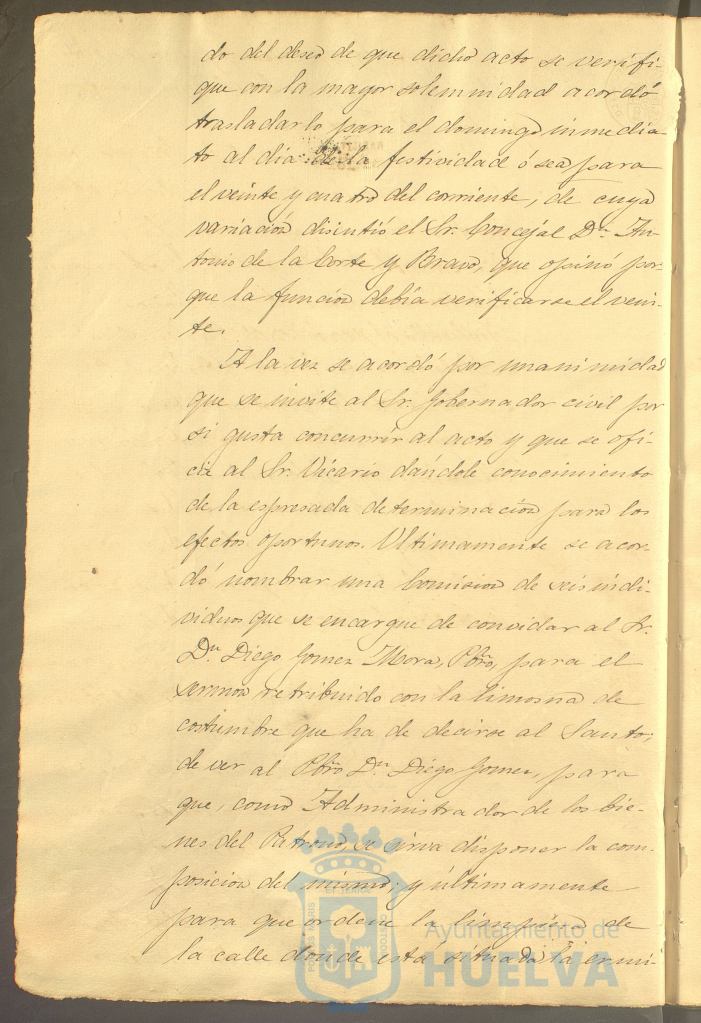 do del deseo de que dicho acto se verifi-
que con la mayor solemnidad acordó
trasladarlo para el domingo inmedia-
to al dia de la festividad ó sea para
el veinte y cuatro del corriente, de cuya
variación discutió el Sr. Concejal Dn. An-
tonio de la Corte y Bravo, que opinó por-
que la función debía verificarse el vein-
te.
A la vez se acordó por unanimidad
que se invite al Sr. Gobernador civil por
si gusta concurrir al acto y que se ofi-
cie al Sr. Vicario dándole conocimiento
de la espresada determinación para los
efectos oportunos. Ultimamente se acor-
dó nombrar una Comision de seis indi-
viduos que se encargue de convidar al Sr.
Dn. Diego Gomez Mora, Pbro, para el
sermon retribuido con la limosna de
costumbre que ha de decirse al Santo;
de ver al Pbro Dn. Diego Gomez, para
que, como Administrador de los bie-
nes del Patrono, se sirva disponer la com-
posicion del mismo; y últimamente
para que ordene la limpieza de
la calle donde está situada la ermi-
Ayuntamiento de
HUELVA